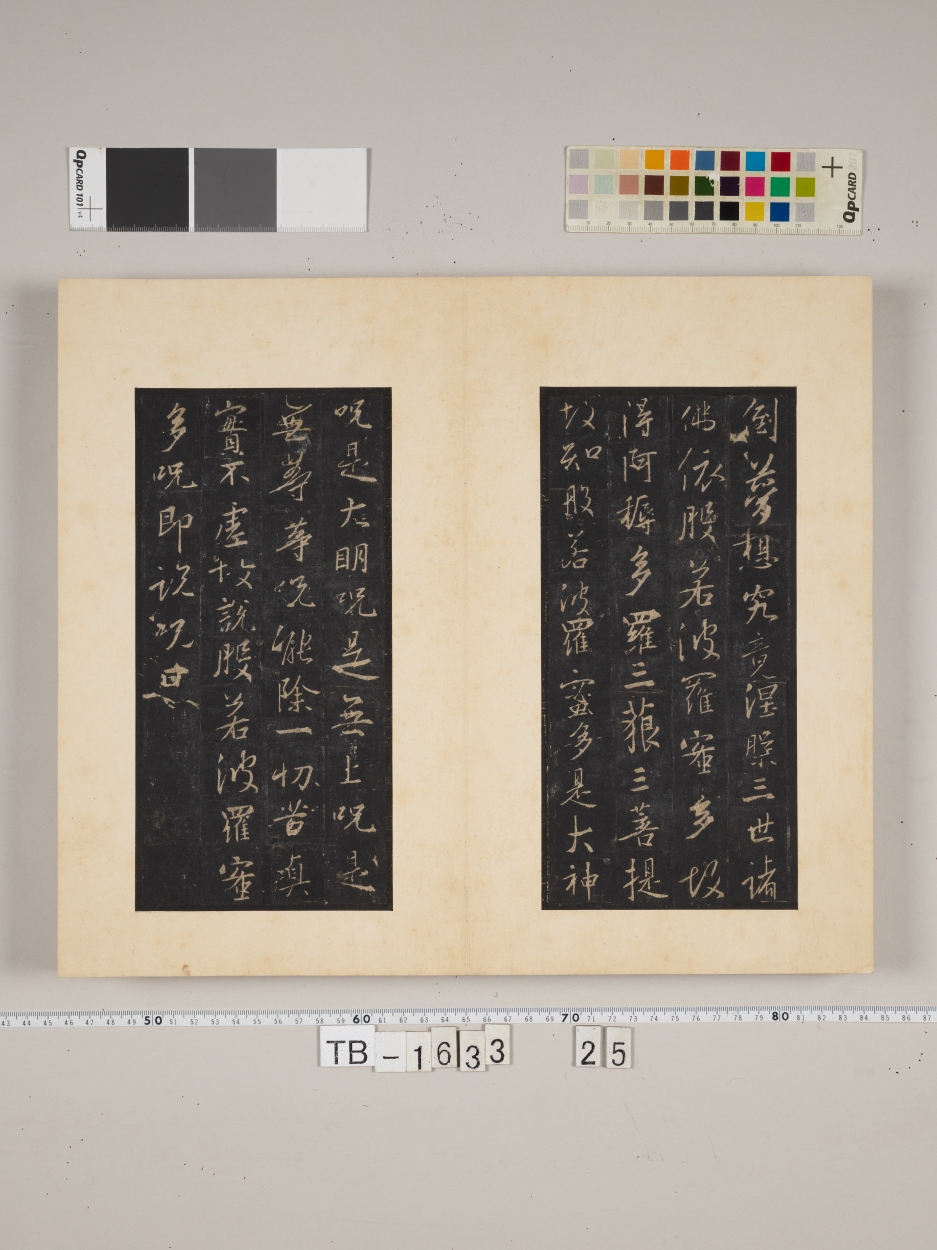 QpCARD 101 v4
QpCARD 201
倒夢想究竟涅槃三世諸
佛依般若波羅蜜多故
得阿耨多羅三藐三菩提
故知般若波羅蜜多是大神
咒是大明咒是無上咒是
無等等咒能除一切苦真
實不虛故說般若波羅蜜
多咒即說咒曰
43 44 45 46 47 48 49 50 51 52 53 54 55 56 57 58 59 60 61 62 63 64 65 66 67 68 69 70 71 72 73 74 75 76 77 78 79 80 81 82 83 84 85 86 87
TB-1633 25